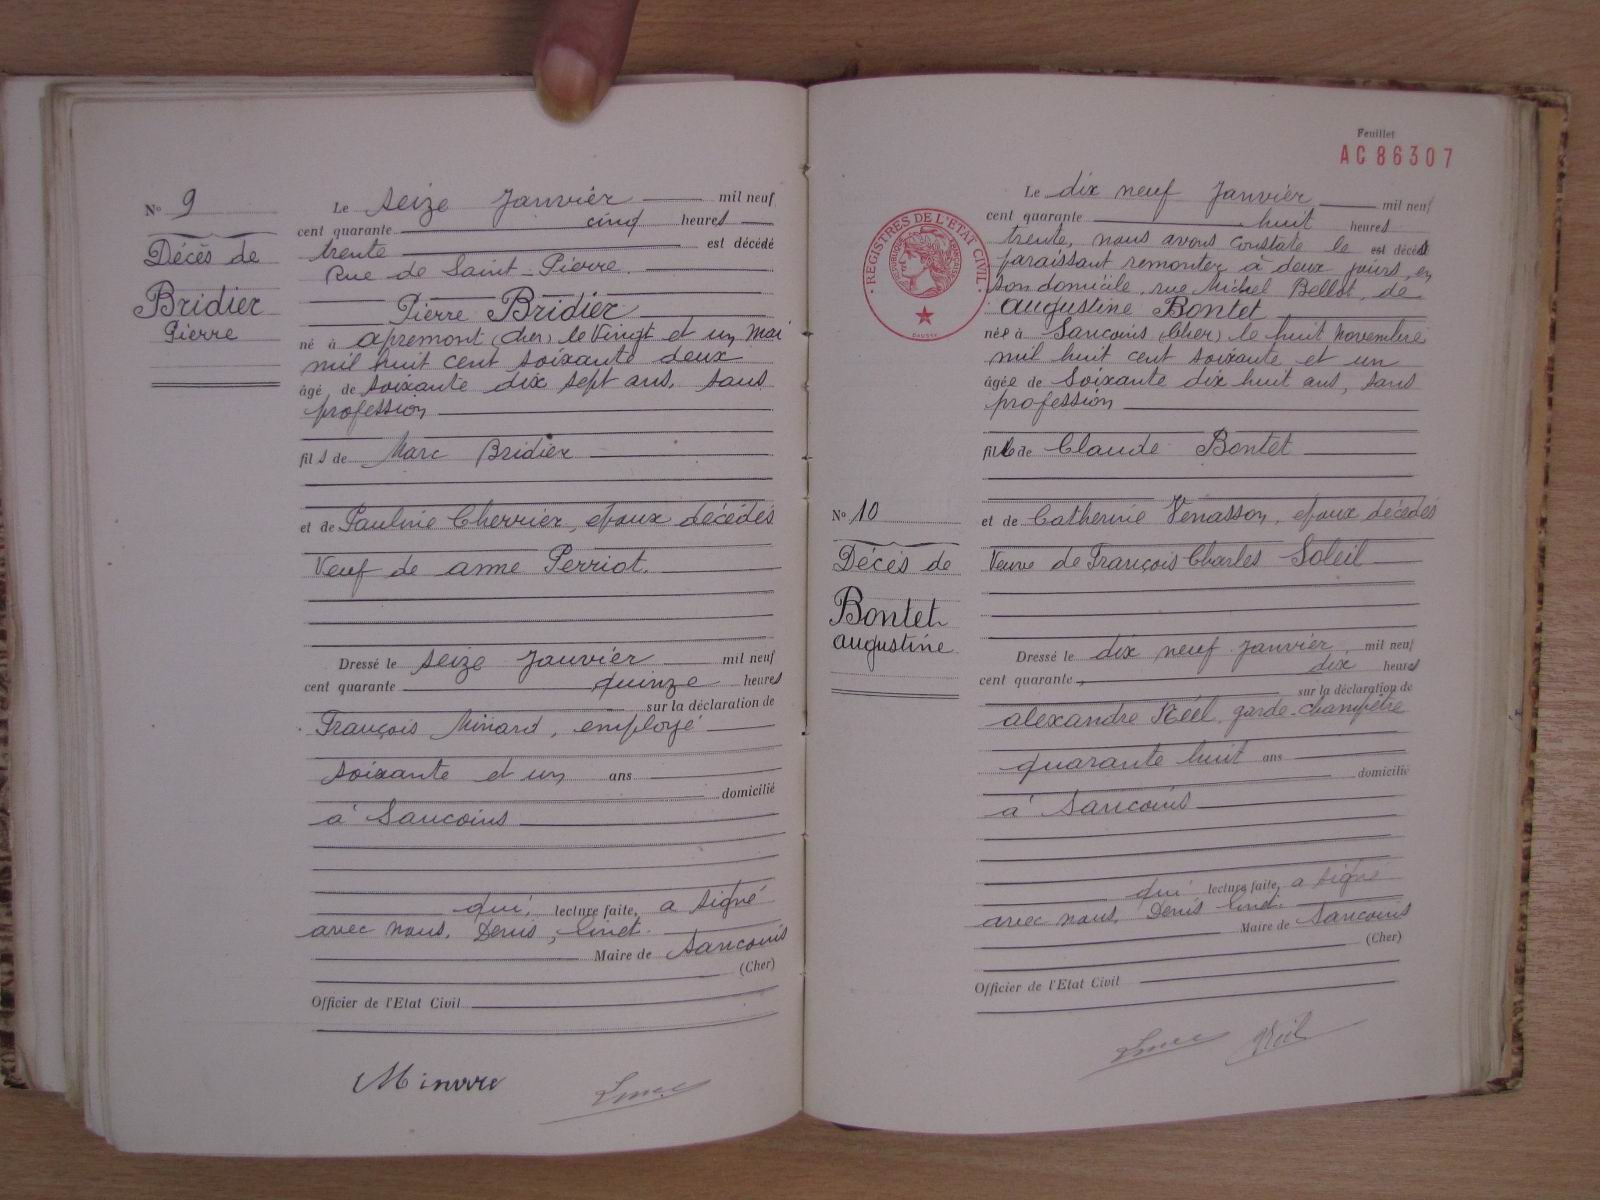 Nº 9
Décès de
Bridier
Pierre
Le seize Janvier mil neuf
cent quarante cinq heures
trente est décédé
Rue de Saint-Pierre.
Pierre Bridier
né à apremont (cher) le Vingt et un Mai
mil huit cent soixante deux
âgé de soixante dix sept ans, sans
profession
fils de Marc Bridier
et de Pauline Cherrier, époux décédés
Veuf de anne Perriot.
Dressé le seize Janvier mil neuf
cent quarante quinze heures
sur la déclaration de
François Minard, employé
soixante et un ans
domicilié
à Sancoins
qui, lecture faite, a signé
avec nous, Denis,
Maire de Sancoins
(Cher)
Officier de l'Etat Civil
Feuillet
AC 86307
REGISTRES DE L'ETAT CIVIL
Le dix neuf Janvier mil neuf
cent quarante huit heures
trente, nous avons constaté le est décédé
paraissant remonter à deux jours, en
son domicile, rue Michel Bellot, de
augustine Bontet
née à Sancoins (Cher) le huit novembre
mil huit cent soixante et un
âgée de soixante dix huit ans, sans
profession
fille de Claude Bontet
Nº 10
Décès de
Bontet
augustine
et de Catherine Venasson, époux décédés
Veuve de François Charles Soleil
Dressé le dix neuf Janvier, mil neuf
cent quarante dix heures
sur la déclaration de
alexandre Réel, garde-champêtre
quarante huit ans
domicilié
à Sancoins
qui lecture faite, a signé
avec nous, Denis
Maire de Sancoins
(Cher)
Officier de l'Etat Civil